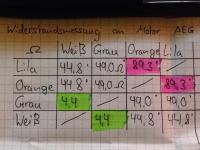 Widerstandsmessung am Motor AEG
Ω Weiß Grau Orange Lila
Lila 44,8 49,0Ω 89,3 /
Orange 44,8 49,0 / 89,3
Grau 4,4 / 49,0 49,0
Weiß / 4,4 44,8 44,8